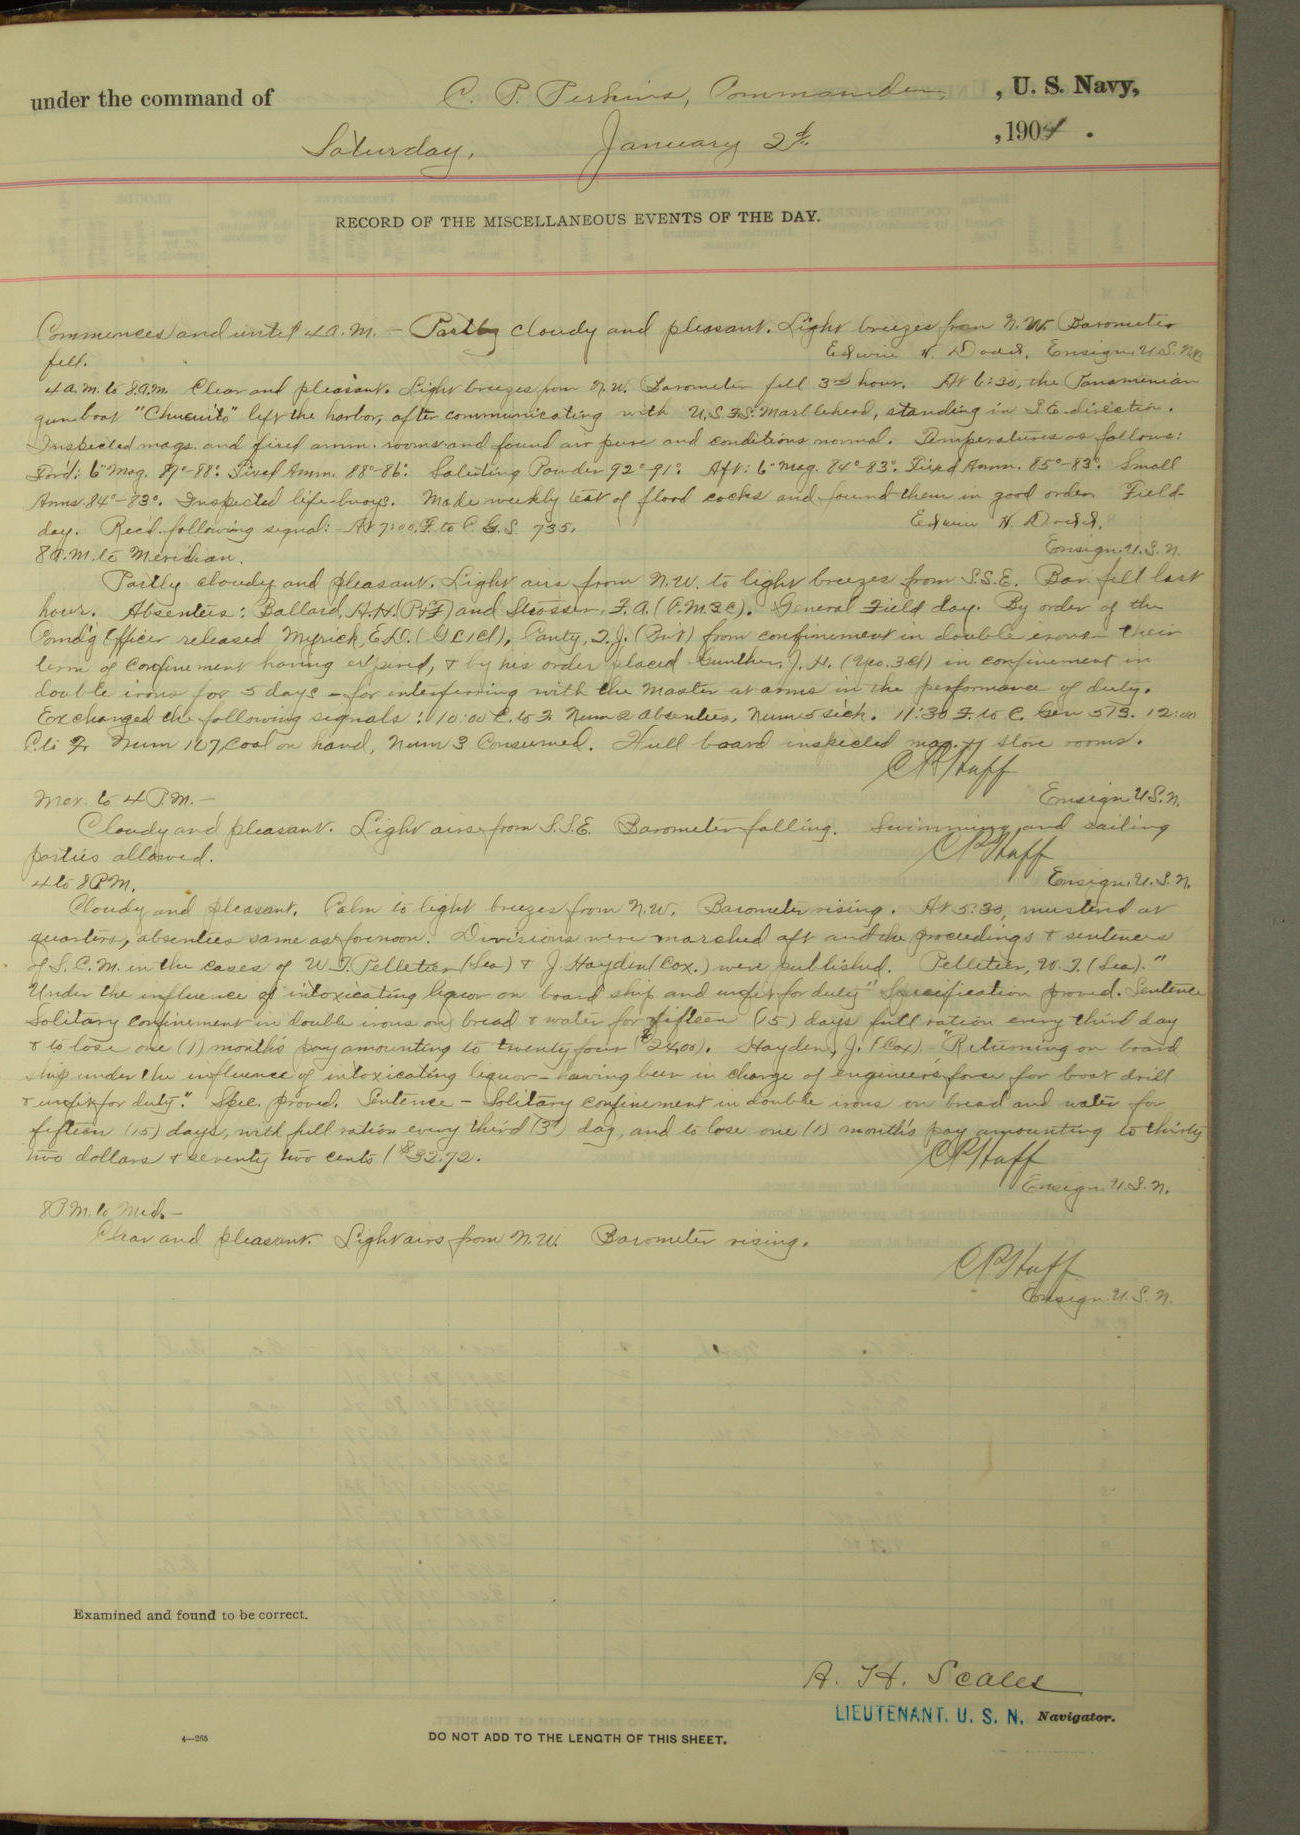 under the command of C. P. Perkins, Commander, , U. S. Navy,
Saturday, January 2d. , 1904 .
RECORD OF THE MISCELLANEOUS EVENTS OF THE DAY.
Commences and until 4 A.M. — Partly cloudy and pleasant. Light breezes from N.W. Barometer
fell. Edwin H. Dodd, Ensign, U.S.N.
4 A.M. to 8 A.M. Clear and pleasant. Light breezes from N.W. Barometer fell 3rd hour. At 6:30, the Panamenian
gun boat "Chucuito" left the harbor, after communicating with U.S.F.S. Marblehead, standing in S.E. direction.
Inspected mags. and fixed amm. rooms and found air pure and conditions normal. Temperatures as follows:
For'd: 6" Mag. 89°-88°. Fixed Amm. 88°-86°. Saluting Powder 92°-91°. Aft: 6" Mag. 84°-83°. Fixed Amm. 85°-83°. Small
Arms 84°-83°. Inspected life-buoys. Made weekly test of flood cocks and found them in good order. Field-
day. Recd. following signal: At 7:00, F. to C. G.S. 735. Edwin H. Dodd,
8 A.M. to Meridian. Ensign, U.S.N.
Partly cloudy and pleasant. Light airs from N.W. to light breezes from S.S.E. Bar. fell last
hour. Absentees: Ballard, A.H. and Slosser, F.A. General Field day. By order of the
Comd'g Officer released Myrick, E.D. Canty, T.J. from confinement in double irons their
term of confinement having expired, & by his order placed Gunther, J. H. (Yeo. 3cl) in confinement in
double irons for 5 days — for interferring with the Master at arms in the performance of duty.
Exchanged the following signals: 10:00 C. to F. Num 2 absentees, Num 5 sick. 11:30 F. to C. Gen 573. 12:00
C. to F. Num 127 Coal on hand, Num 3 Consumed. Hull board inspected mag. & store rooms.
C P Huff
Mer. to 4 P.M. — Ensign, U.S.N.
Cloudy and pleasant. Light airs from S.S.E. Barometer falling. Swimming and sailing
parties allowed. C P Huff
4 to 8 P.M. Ensign, U.S.N.
Cloudy and pleasant. Calm to light breezes from N.W. Barometer rising. At 5:30, mustered at
quarters, absentees same as forenoon. Divisions were marched aft and the proceedings & sentences
of S.C.M. in the cases of W.F. Pelletier (Sea) & J. Hayden (Cox.) were published. Pelletier, W.F. (Sea). "
Under the influence of intoxicating liquor on board ship and unfit for duty" Specification proved. Sentence
Solitary confinement in double irons on bread & water for fifteen (15) days full ration every third day
& to lose one (1) month's pay amounting to twenty four ($24.00). Hayden, J. (Cox) "Returning on board
ship under the influence of intoxicating liquor — having been in charge of engineer's force for boat drill
& unfit for duty." Spec. proved. Sentence — Solitary confinement in double irons on bread and water for
fifteen (15) days, with full ration every third (3d) day, and to lose one (1) month's pay amounting to thirty
two dollars & seventy two cents ($32.72. C P Huff
Ensign, U.S.N.
8 P.M. to Mid. —
Clear and pleasant. Light airs from N.W. Barometer rising.
C P Huff
Ensign, U.S.N.
Examined and found to be correct.
A. H. Scales
LIEUTENANT. U. S. N. Navigator.
4—265 DO NOT ADD TO THE LENGTH OF THIS SHEET.